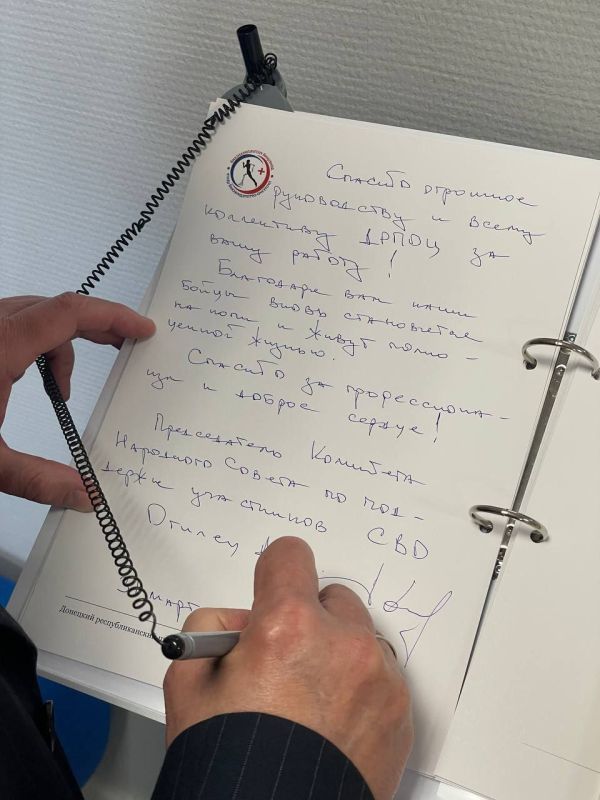 Спасибо огромное
руководству и всему
коллективу ДРПОЦ за
вашу работу!
Благодаря вам наши
бойцы вновь становятся
на ноги и живут полно-
ценной жизнью.
Спасибо за профессиона-
изм и доброе сердце!
Председатель Комитета
Народного Совета по под-
держке участников СВО
марта
Донецкий республиканский